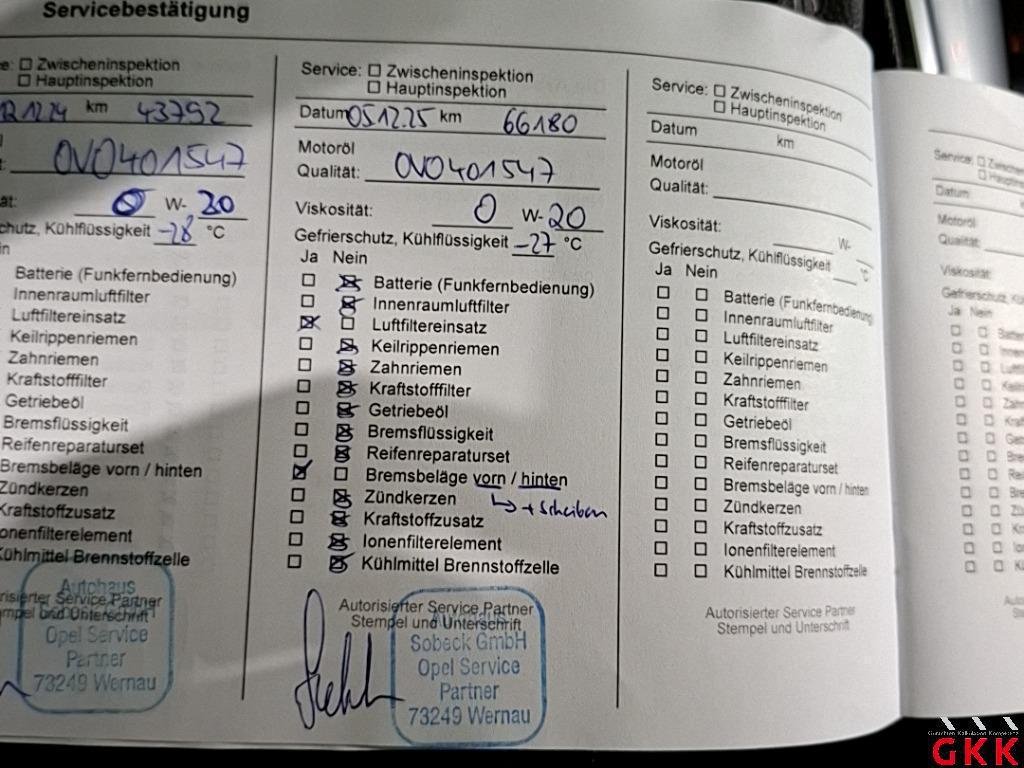 Servicebestätigung
e: ☐ Zwischeninspektion
☐ Hauptinspektion
12.12.24 km 43792
OVO401547
ät: 0 W- 20
chutz, Kühlflüssigkeit -28 °C
in
Batterie (Funkfernbedienung)
Innenraumluftfilter
Luftfiltereinsatz
Keilrippenriemen
Zahnriemen
Kraftstofffilter
Getriebeöl
Bremsflüssigkeit
Reifenreparaturset
Bremsbeläge vorn / hinten
Zündkerzen
Kraftstoffzusatz
onenfilterelement
Kühlmittel Brennstoffzelle
risierter Service Partner
mpel und Unterschrift
Autohaus
Opel Service
Partner
73249 Wernau
Service: ☐ Zwischeninspektion
☐ Hauptinspektion
Datum 05.12.25 km 66180
Motoröl
Qualität: OVO401547
Viskosität: 0 W-20
Gefrierschutz, Kühlflüssigkeit -27 °C
Ja Nein
☐ ☒ Batterie (Funkfernbedienung)
☐ ☒ Innenraumluftfilter
☒ ☐ Luftfiltereinsatz
☐ ☒ Keilrippenriemen
☐ ☒ Zahnriemen
☐ ☒ Kraftstofffilter
☐ ☒ Getriebeöl
☐ ☒ Bremsflüssigkeit
☐ ☒ Reifenreparaturset
☒ ☐ Bremsbeläge vorn / hinten
☐ ☒ Zündkerzen ↳ + Scheiben
☐ ☒ Kraftstoffzusatz
☐ ☒ Ionenfilterelement
☐ ☒ Kühlmittel Brennstoffzelle
Autorisierter Service Partner
Stempel und Unterschrift
Sobeck GmbH
Opel Service
Partner
73249 Wernau
Service: ☐ Zwischeninspektion
☐ Hauptinspektion
Datum km
Motoröl
Qualität:
Viskosität: W-
Gefrierschutz, Kühlflüssigkeit °C
Ja Nein
☐ ☐ Batterie (Funkfernbedienung)
☐ ☐ Innenraumluftfilter
☐ ☐ Luftfiltereinsatz
☐ ☐ Keilrippenriemen
☐ ☐ Zahnriemen
☐ ☐ Kraftstofffilter
☐ ☐ Getriebeöl
☐ ☐ Bremsflüssigkeit
☐ ☐ Reifenreparaturset
☐ ☐ Bremsbeläge vorn / hinten
☐ ☐ Zündkerzen
☐ ☐ Kraftstoffzusatz
☐ ☐ Ionenfilterelement
☐ ☐ Kühlmittel Brennstoffzelle
Autorisierter Service Partner
Stempel und Unterschrift
Service: ☐
Datum
Motoröl
Qualität:
Viskosität:
Ja Nein
GKK